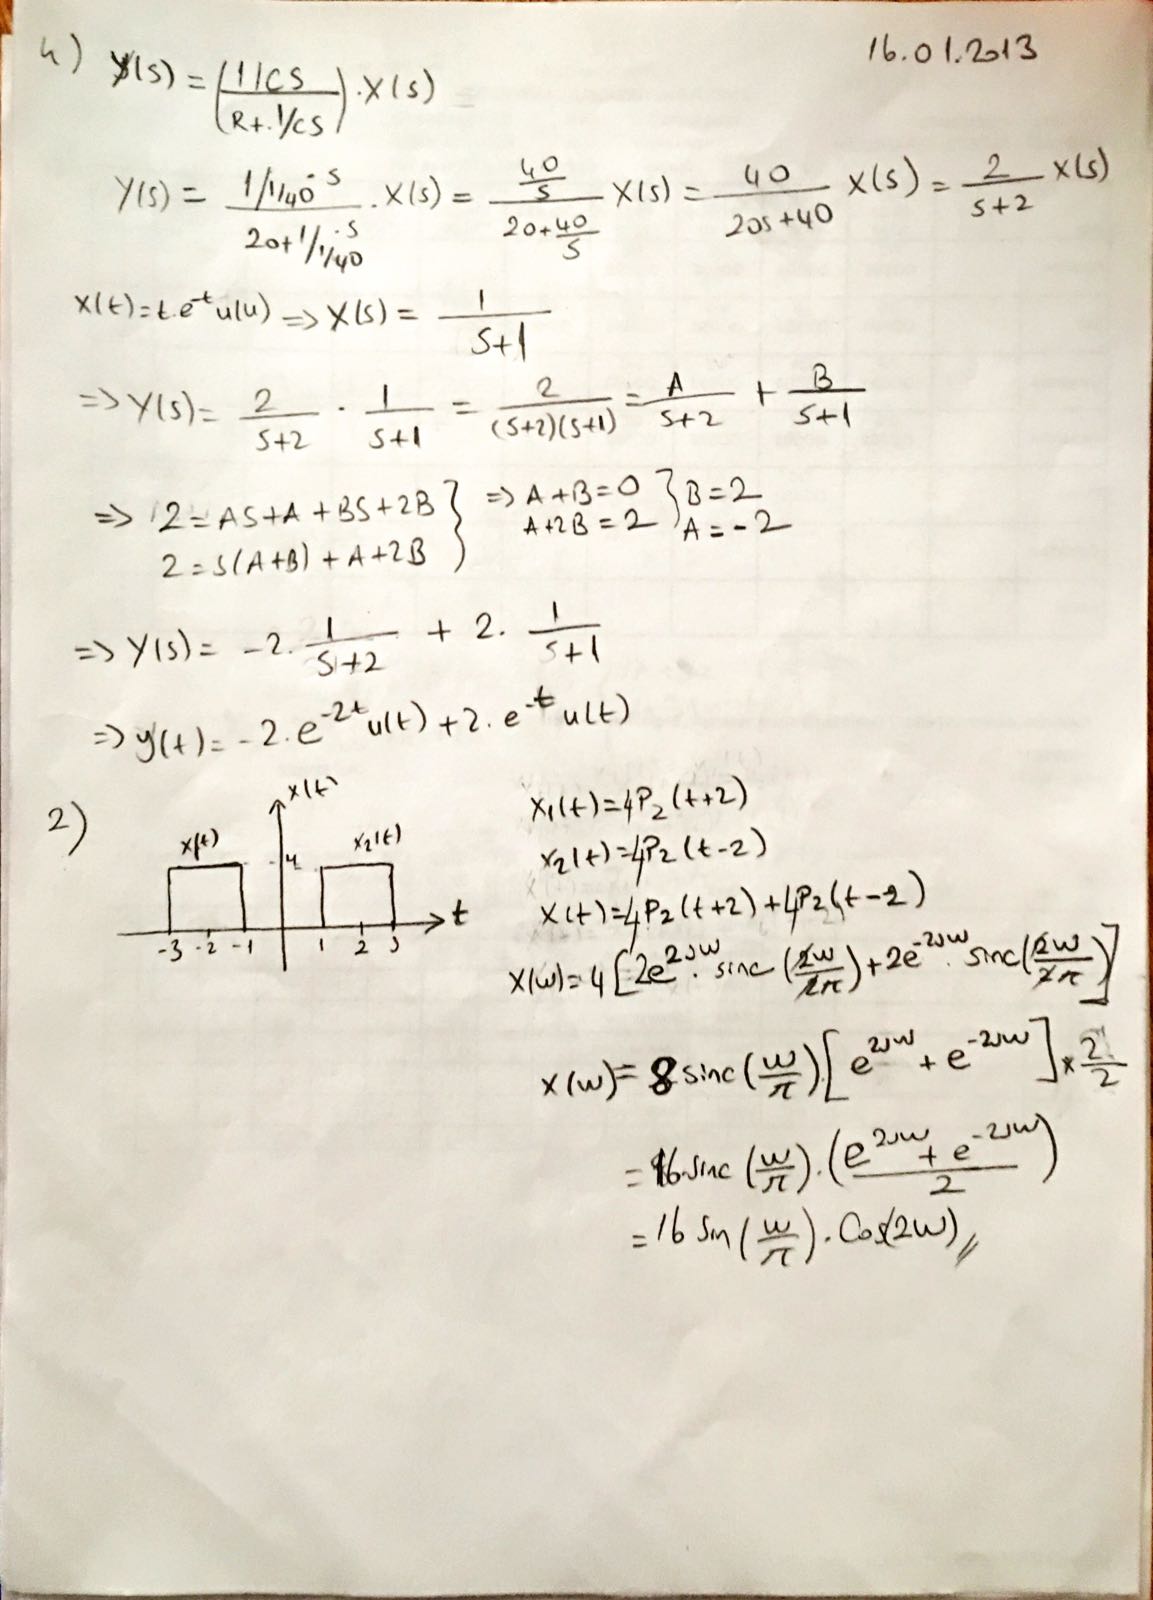 16.01.2013
4) Y(s) = ((1/CS)/(R+1/CS)) . X(s)
Y(s) = (1/1/40 . s)/(20+1/1/40 . s) . X(s) = (40/s)/(20+40/s) X(s) = 40/(20s+40) X(s) = 2/(s+2) X(s)
x(t)=t.e^-t u(u) => X(s) = 1/(s+1)
=> Y(s) = 2/(s+2) . 1/(s+1) = 2/((s+2)(s+1)) = A/(s+2) + B/(s+1)
=> 2 = AS+A+BS+2B } => A+B=0 } B=2
2 = s(A+B)+A+2B } A+2B=2 } A=-2
=> Y(s) = -2. 1/(s+2) + 2. 1/(s+1)
=> y(t) = -2.e^-2t u(t) + 2.e^-t u(t)
2)
x(t)
x(t) 4 x2(t)
t
-3 -2 -1 1 2 3
x1(t)=4P2(t+2)
x2(t)=4P2(t-2)
x(t)=4P2(t+2)+4P2(t-2)
X(w)=4[2e^2jw . sinc(2w/2π)+2e^-2jw . sinc(2w/2π)]
X(w)= 8 sinc(w/π)[e^2jw + e^-2jw] x 2/2
= 16.sinc(w/π).((e^2jw + e^-2jw)/2)
= 16 Sin(w/π). Cos(2w)//